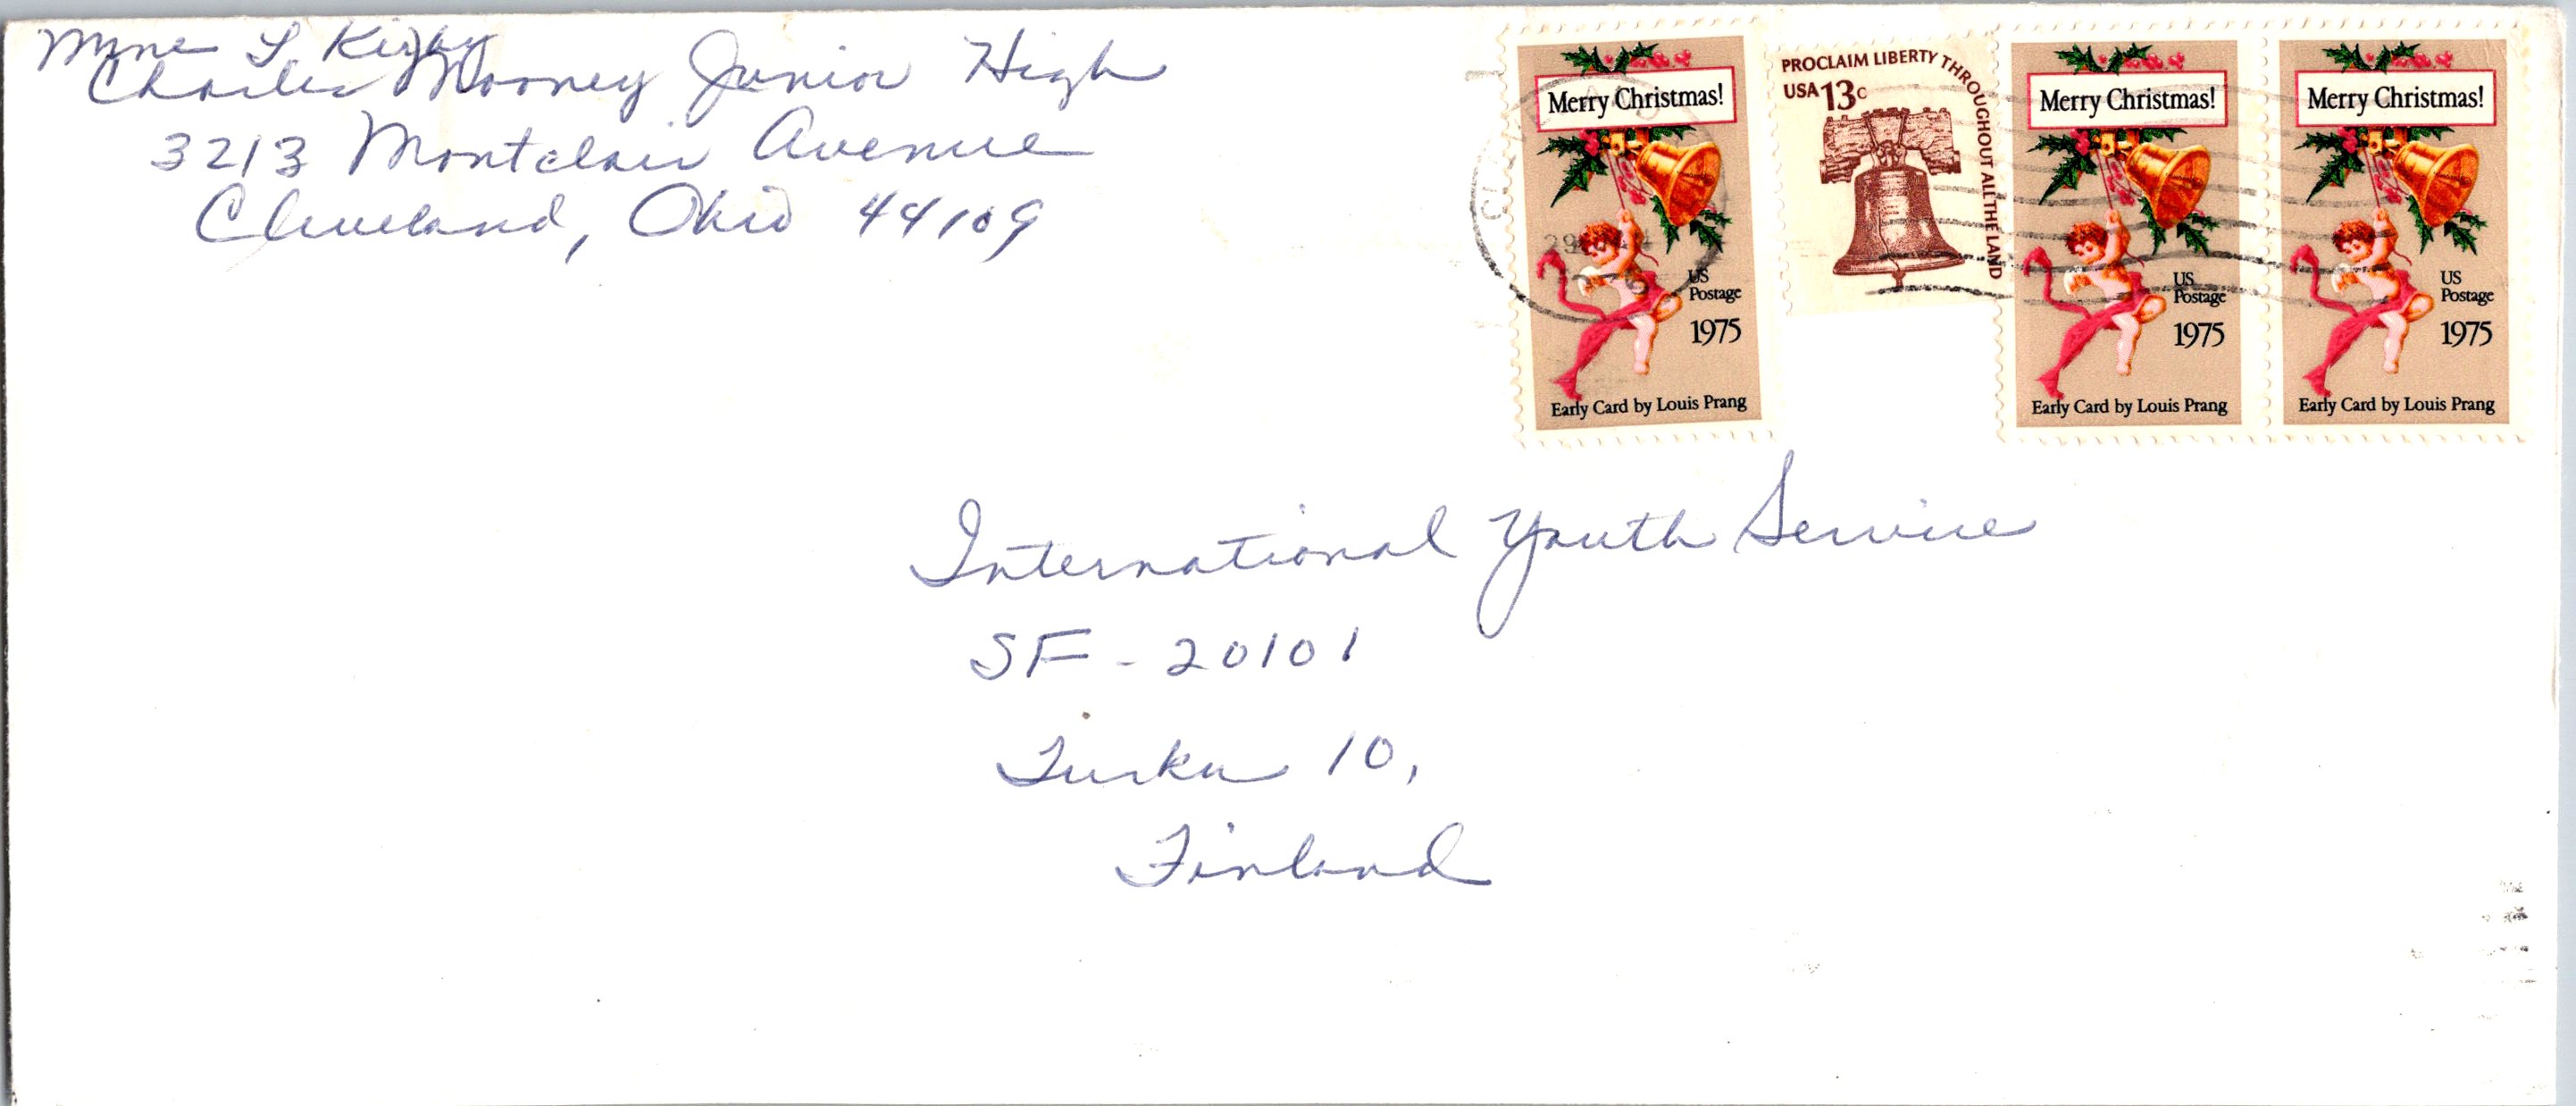 Mme L Kirby
Charles Mooney Junior High
3213 Montclair Avenue
Cleveland, Ohio 44109
Merry Christmas!
US
Postage
1975
Early Card by Louis Prang
PROCLAIM LIBERTY THROUGHOUT ALL THE LAND
USA 13c
Merry Christmas!
US
Postage
1975
Early Card by Louis Prang
Merry Christmas!
US
Postage
1975
Early Card by Louis Prang
International Youth Service
SF - 20101
Turku 10,
Finland